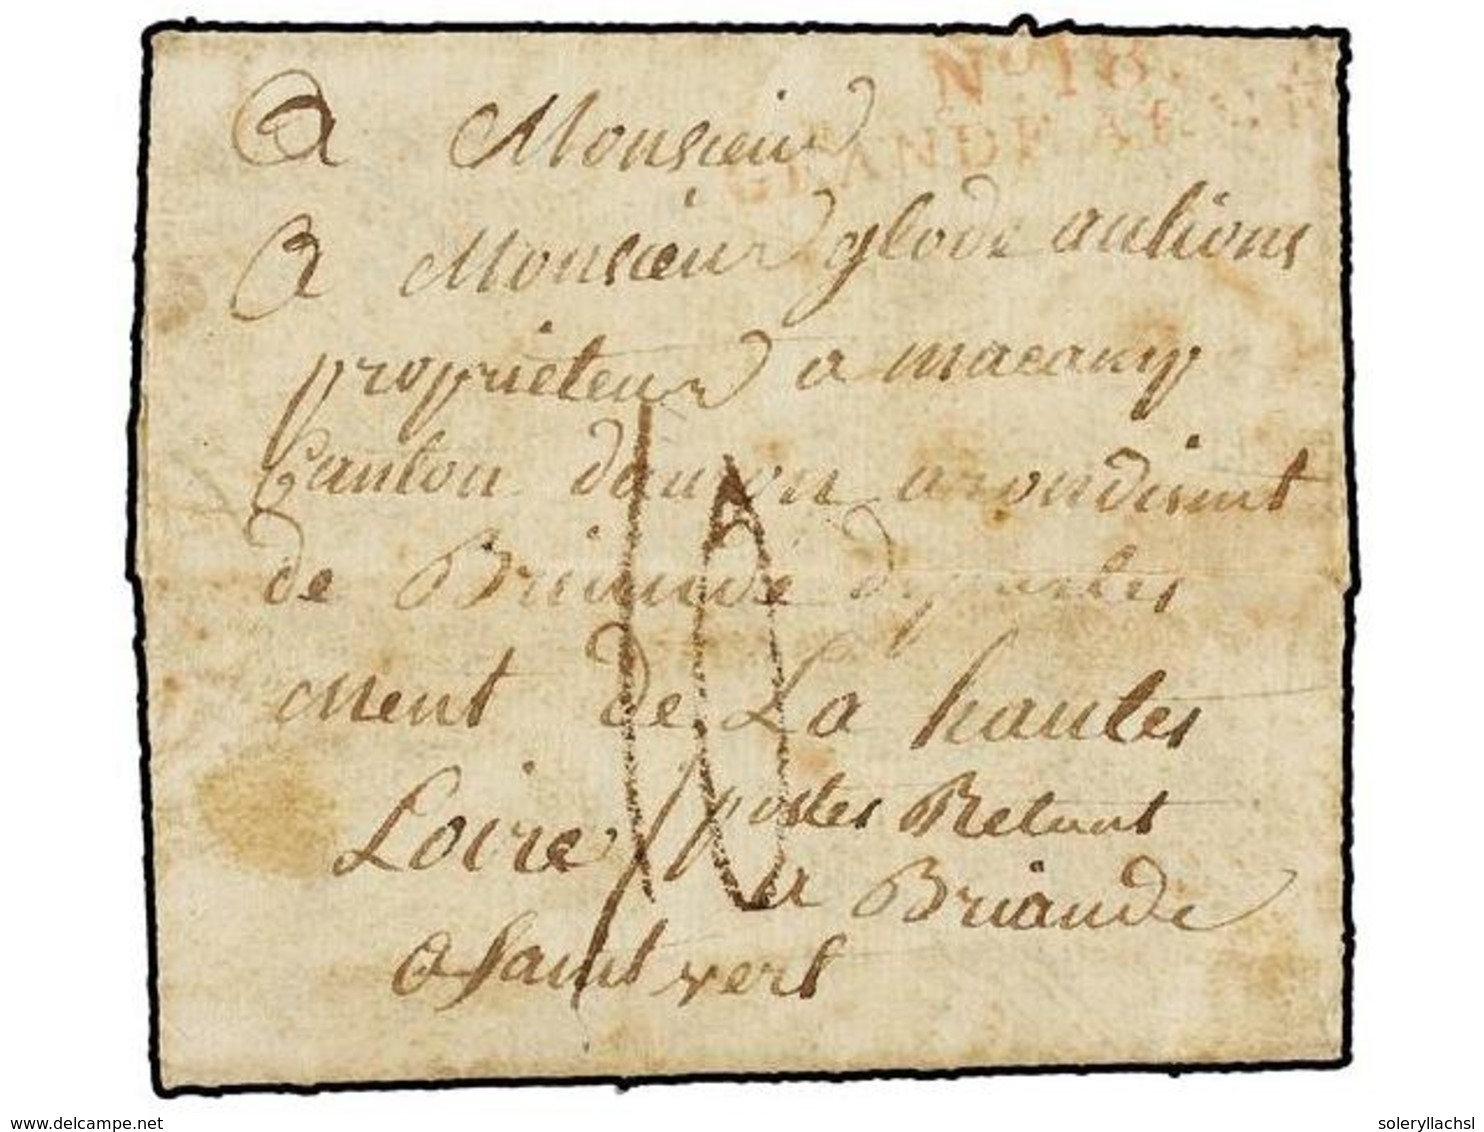 No 18.
GRANDE ARMÉE
A Monsieur
A Monsieur glode aulions
proprieteur a macamp
Canton dauzon arondisint
de Briaude departes
ment de La hautes
Loire postes Retant
a Briaude
a saint vert
10
delcampe.net
soleryllachsl